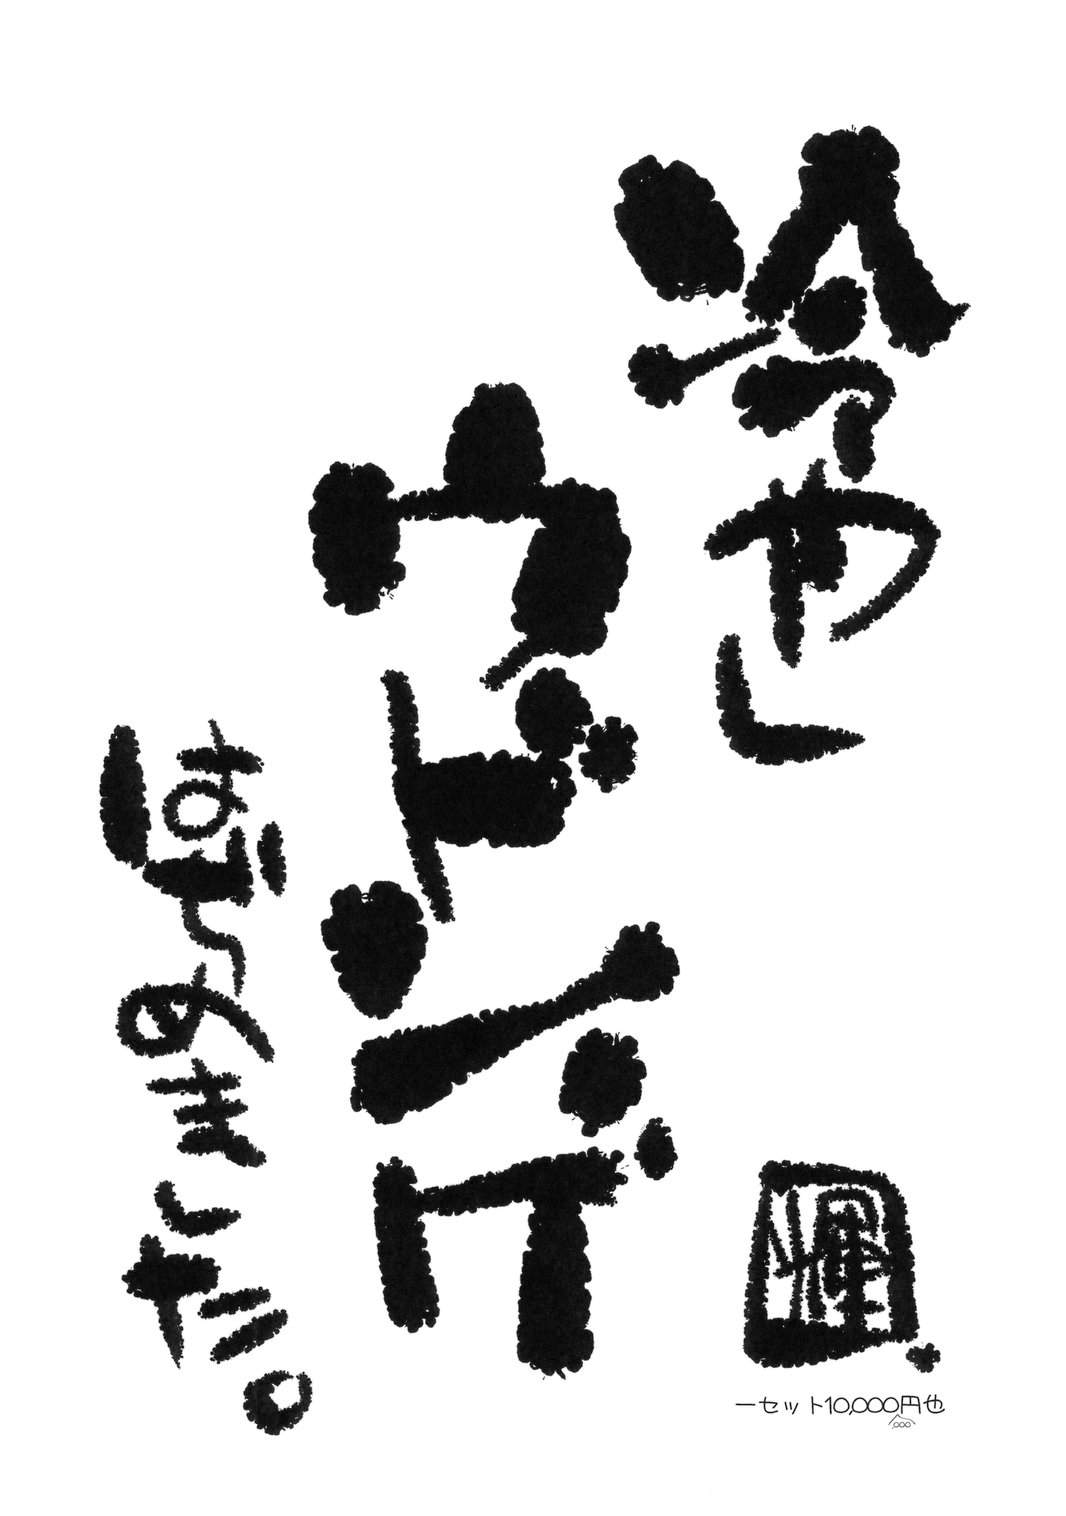 冷やし
ウドンゲ
はぢめました。
輝
一セット10,000円也
,000